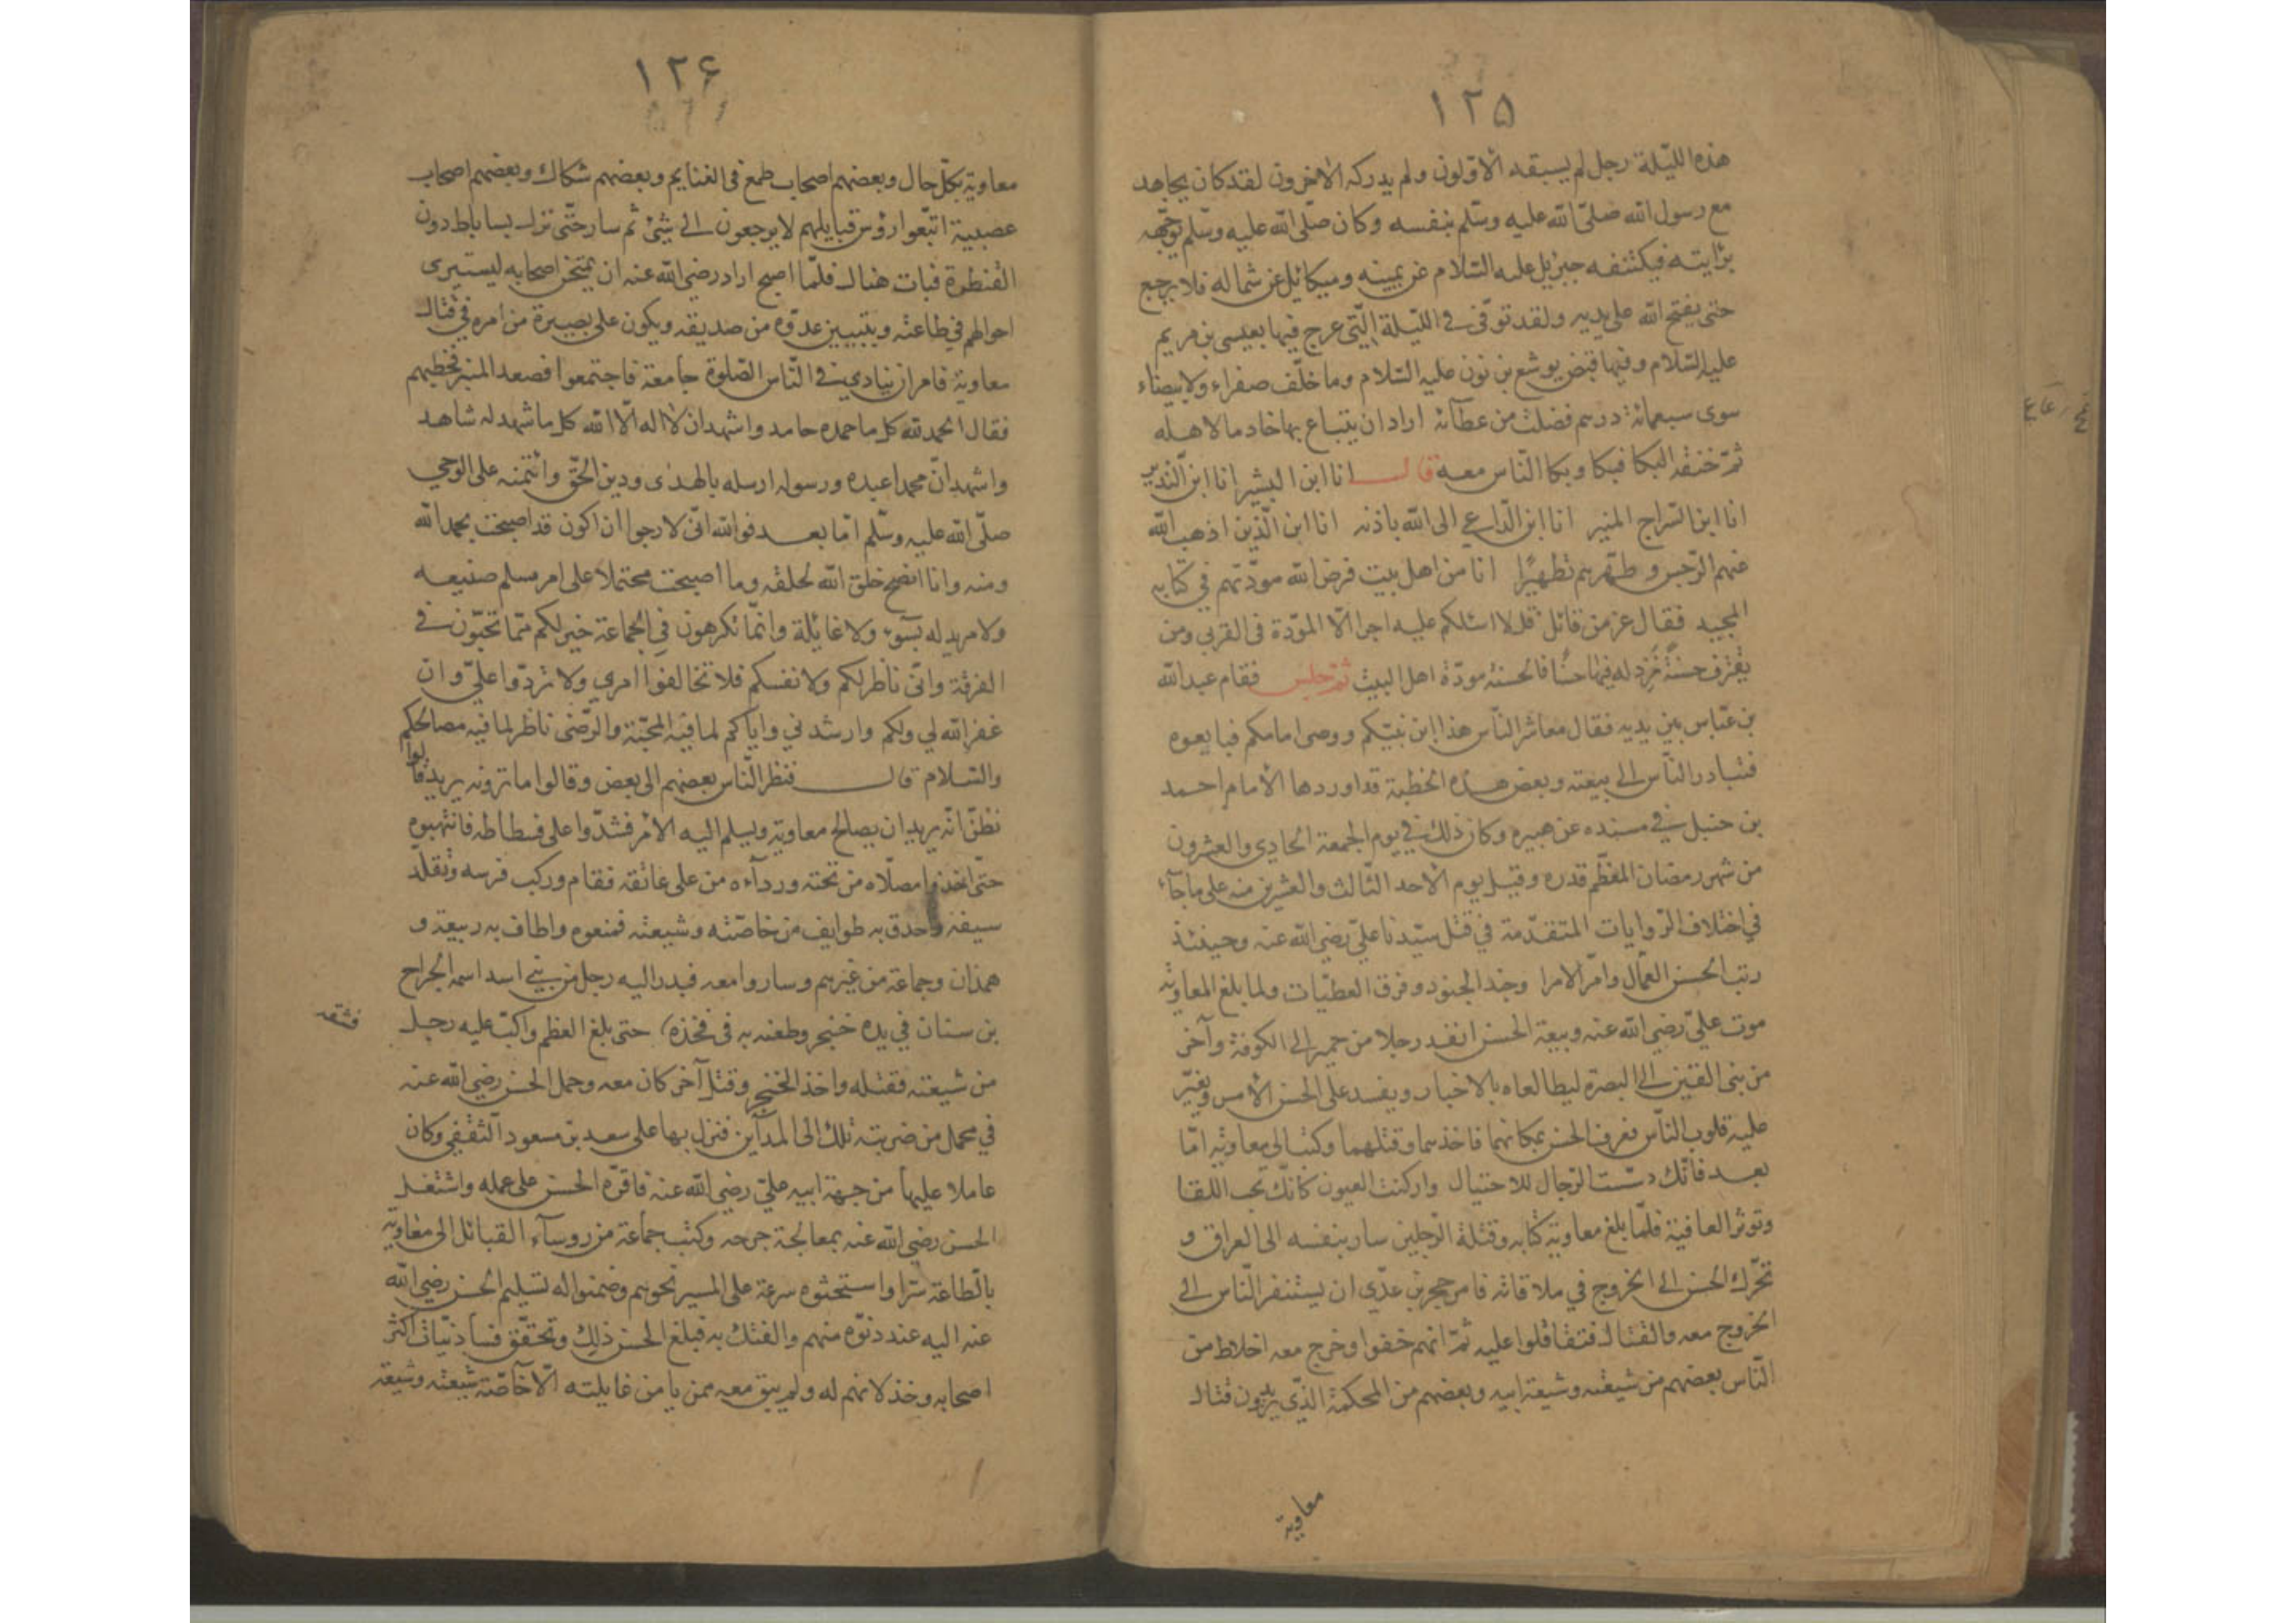 ١٢٥
هذه الليّلة رجل لم يسبقه الأوّلون ولم يدركه الآخرون لقد كان يجاهد
مع رسول الله صلّى الله عليه وسلّم بنفسه وكان صلّى الله عليه وسلّم يوجّهه
برايته فيكتنفه جبرئيل عليه السّلام عن يمينه وميكائيل عن شماله فلا يرجع
حتى يفتح الله على يديه ولقد توفّى فى اللّيلة الّتى عرج فيها بعيسى بن مريم
عليه السّلام وفيها قبض يوشع بن نون عليه السّلام وما خلّف صفراء ولا بيضاء
سوى سبعمائة درهم فضلت من عطائه اراد ان يبتاع بها خادما لاهله
ثمّ خنقه البكا فبكا وبكا النّاس معه قال انا ابن البشير انا ابن النّذير
انا ابن السّراج المنير انا ابن الدّاعي الى الله باذنه انا ابن الّذين اذهب الله
عنهم الرّجس وطهّرهم تطهيرًا انا من اهل بيت فرض الله مودّتهم في كتابه
المجيد فقال عز من قائل قل لا اسئلكم عليه اجرا الّا المودّة فى القربى ومن
يقترف حسنةً نزد له فيها حسنًا فالحسنة مودّة اهل البيت ثمّ جلس فقام عبد الله
بن عبّاس بين يديه فقال معاشر النّاس هذا ابن نبيّكم ووصى امامكم فبايعوه
فتبادر النّاس الى بيعته وبعض هذه الخطبة قد اوردها الأمام احمد
بن حنبل فى مسنده عن هبيره وكان ذلك في يوم الجمعة الحادي والعشرون
من شهر رمضان المعظّم قدره وقيل يوم الأحد الثّالث والعشرين منه على ماجآء
في اختلاف الرّوايات المتقدّمة في قتل سيّدنا عليّ رضي الله عنه وحينئذ
رتب الحسن العمّال وامّر الامرا وجند الجنود وفرق العطيّات ولما بلغ المعاوية
موت عليّ رضي الله عنه وبيعة الحسن انفد رجلا من حمير الى الكوفة وآخر
من بنى القين الى البصرة ليطالعاه بالاخبار ويفسد على الحسن الأمس ويغيّر
عليه قلوب النّاس فعرف الحسن بمكانهما فاخذهما وقتلهما وكتب الى معاوية امّا
بعد فانّك دسّست الرّجال للاحتيال واركنت العيون كانّك تحب اللقا
وتوثر العافية فلمّا بلغ معاوية كتابه وقتلة الرّجلين سار بنفسه الى العراق و
تحّرك الحسن الى الخروج في ملاقاته فامر حجر بن عدّي ان يستنفر النّاس الى
الخروج معه والقتال فتثاقلوا عليه ثمّ انهم خفوا وخرج معه اخلاط من
النّاس بعضهم من شيعته وشيعة ابيه وبعضهم من المحكمة الّذي يريدون قتال
معاوية
١٢۶
معاوية بكلّ حال وبعضهم اصحاب طمع فى الغنايم وبعضهم شكاك وبعضهم اصحاب
عصبية اتبّعوا رؤس قبايلهم لا يرجعون الى شئ ثم سار حتّى نزل بساباط دون
القنطرة فبات هنال فلمّا اصبح اراد رضي الله عنه ان يمتحن اصحابه ليستبرى
احوالهم في طاعته ويتبيين عدوّه من صديقه ويكون على بصيرة من امره في قتال
معاوية فامر ان ينادي فى النّاس الصّلوة جامعة فاجتمعوا فصعد المنبر فخطبهم
فقال الحمد لله كل ما حمده حامد واشهد ان لا اله الّا الله كل ما شهد له شاهد
واشهد انّ محمدا عبده ورسوله ارسله بالهدى ودين الحّق وائتمنه على الوحي
صلّى الله عليه وسلّم امّا بعد فوالله انّى لارجوا ان اكون قد اصبحت بحمد الله
ومنه وانا انصح خلق الله لخلقه وما اصبحت محتملا على امر مسلم صنيعه
ولا مريد له بسوء ولا غايلة وانمّا تكرهون في الجماعة خير لكم ممّا تحبّون فى
الفرقة وانّى ناظر لكم ولا نفسكم فلا تخالفوا امري ولا تردّوا عليّ وان
غفر الله لي ولكم وارشدني واياكم لما فيه المحبّة والرّضى ناظر لما فيه مصالحكم
والسّلام قال فنظر النّاس بعضهم الى بعض وقالوا ما ترونه يريد قالوا
نظنّ انّه يريد ان يصالح معاوية ويسلم اليه الأمر فشدّوا على فسطاطه فانتهبوه
حتّى اخذوا مصلّاه من تحته وردآءه من على عاتقه فقام وركب فرسه وتقلّد
سيفه واحدق به طوايف من خاصّته وشيعته فمنعوه واطاف به ربيعة و
همذان وجماعة من غيرهم وساروا معه فبدر اليه رجل من بني اسد اسمه الجراح
بن سنان في يده خنجر وطعنه به فى فخذه حتى بلغ العظم واكبّ عليه رجل
فشقه
من شيعته فقتله واخذ الخنجر وقتل آخر كان معه وحمل الحسن رضي الله عنه
في محمل من ضربته تلك الى المدآين فنزل بها على سعد بن مسعود الثقفي وكان
عاملا عليها من جهة ابيه عليّ رضي الله عنه فاقرّه الحسن على عمله واشتغل
الحسن رضي الله عنه بمعالجة جرحه وكتب جماعة من روسآء القبائل الى معاوية
بالّطاعة سّرا واستحثوه سرعة على المسير نحوهم وضمنوا له تسليم الحسن رضي الله
عنه اليه عند دنوّه منهم والفتك به فبلغ الحسن ذلك وتحقّق فساد نيّات اكثر
اصحابه وخذلانهم له ولم يبق معه ممن يامن غايلته الّا خاصّة شيعته وشيعة